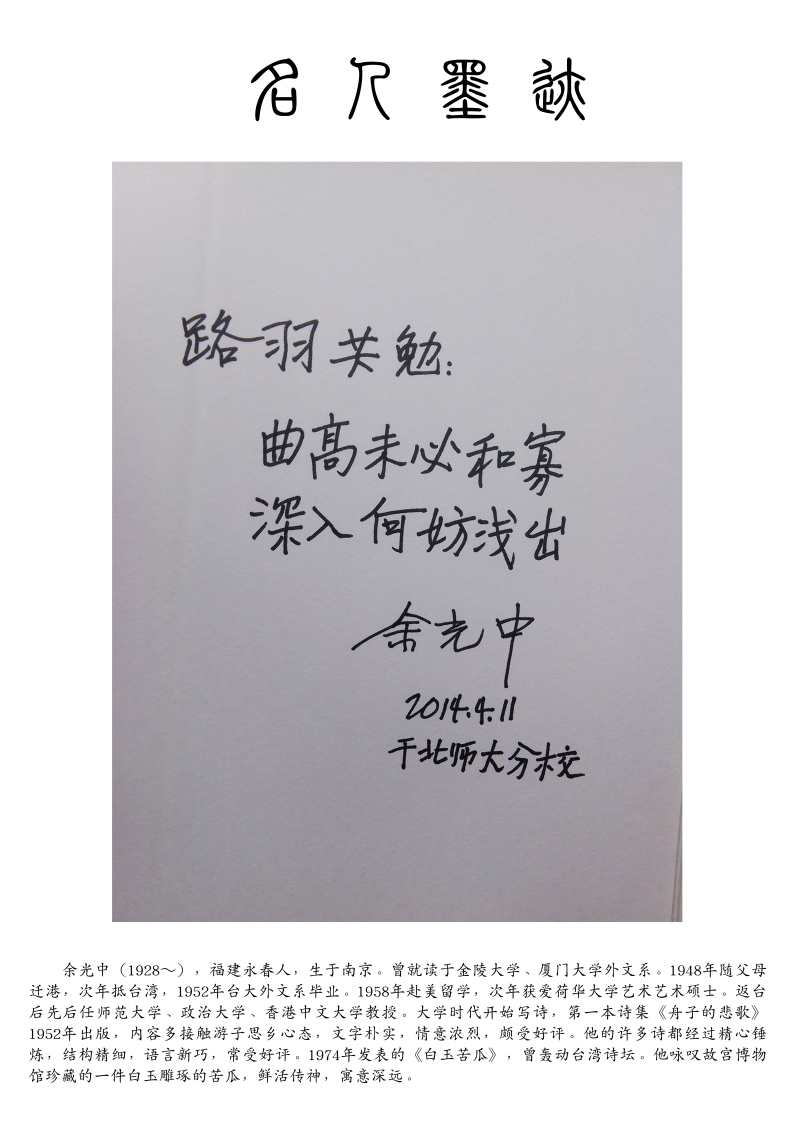 名人墨迹
路羽共勉：
曲高未必和寡
深入何妨浅出
余光中
2014.4.11
于北师大分校
余光中（1928～），福建永春人，生于南京。曾就读于金陵大学、厦门大学外文系。1948年随父母
迁港，次年抵台湾，1952年台大外文系毕业。1958年赴美留学，次年获爱荷华大学艺术艺术硕士。返台
后先后任师范大学、政治大学、香港中文大学教授。大学时代开始写诗，第一本诗集《舟子的悲歌》
1952年出版，内容多接触游子思乡心态，文字朴实，情意浓烈，颇受好评。他的许多诗都经过精心锤
炼，结构精细，语言新巧，常受好评。1974年发表的《白玉苦瓜》，曾轰动台湾诗坛。他咏叹故宫博物
馆珍藏的一件白玉雕琢的苦瓜，鲜活传神，寓意深远。